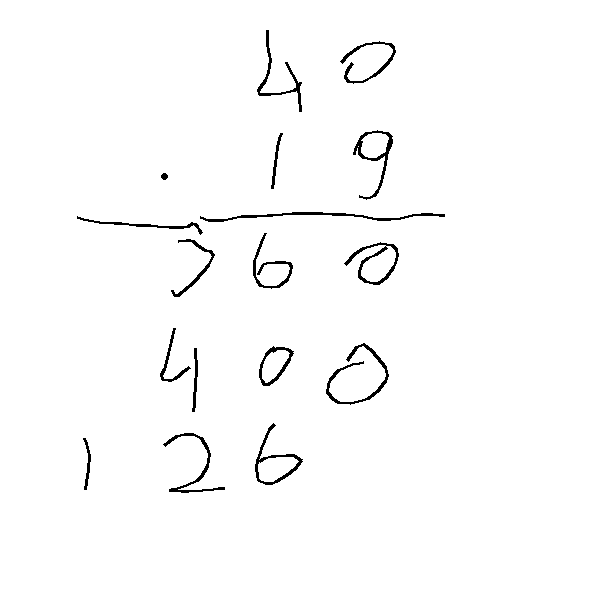 40
. 19
360
400
126